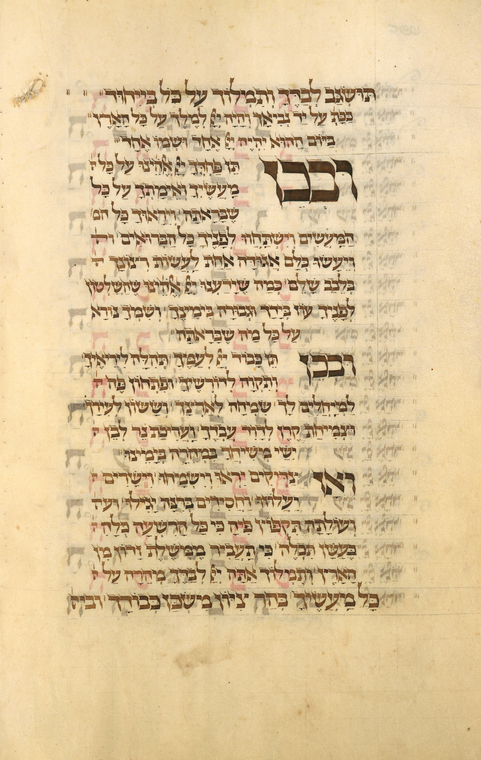 תושגב לבדך ותמלוך על כל בייחוד
ככת על יד נביאך והיה יי למלך על כל הארץ
ביום ההוא יהיה יי אחד ושמו אחד
ובכן תן פחדך יי אלהינו על כל
מעשיך ואימתך על כל
שבראתה וייראוך כל המ
המעשים וישתחוו לפניך כל הברואים
ויעשו כלם אגודה אחת לעשות רצונך
בלבב שלם כמה שידענו יי אלהינו שהשלטון
לפניך עוז בידך וגבורה בימינך ושמך נורא
על כל מה שבראתה
ובכן תן כבוד יי לעמך תהלה ליריאיך
ותקוה לדורשיך ופתחון פה
למיחלים לך שמחה לארצך וששון לעירך
וצמיחת קרן לדוד עבדך ועריכת נר לבן
ישי משיחך במהרה בימינו
ואז צדיקים יראו וישמחו וישרים
יעלוזו וחסידים ברנה יגילו
ועולתה תקפוץ פיה כי כל הרשעה כלה
בעשן תכלה כי תעביר ממשלת זדון מן
הארץ ותמלוך אתה יי לבדך מהרה על
כל מעשיך בהר ציון משכן כבודך